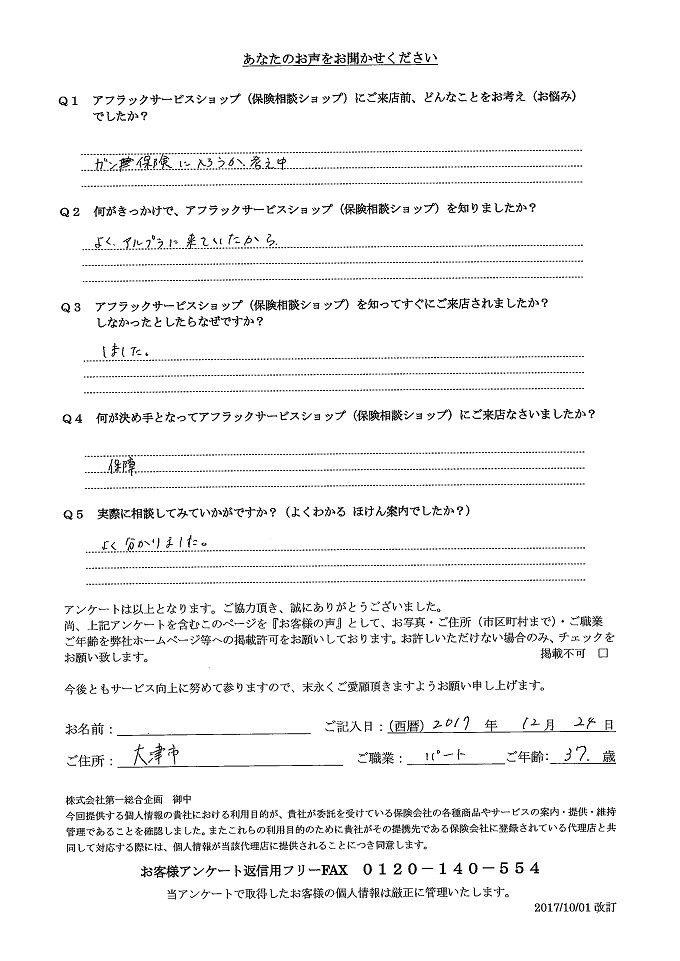 あなたのお声をお聞かせください
Q1 アフラックサービスショップ（保険相談ショップ）にご来店前、どんなことをお考え（お悩み）
でしたか？
ガン保険に入ろうか、考え中
Q2 何がきっかけで、アフラックサービスショップ（保険相談ショップ）を知りましたか？
よく、アルプラに来ていたから
Q3 アフラックサービスショップ（保険相談ショップ）を知ってすぐにご来店されましたか？
しなかったとしたらなぜですか？
しました。
Q4 何が決め手となってアフラックサービスショップ（保険相談ショップ）にご来店なさいましたか？
保障
Q5 実際に相談してみていかがですか？（よくわかる ほけん案内でしたか？）
よく分かりました。
アンケートは以上となります。ご協力頂き、誠にありがとうございました。
尚、上記アンケートを含むこのページを『お客様の声』として、お写真・ご住所（市区町村まで）・ご職業
ご年齢を弊社ホームページ等への掲載許可をお願いしております。お許しいただけない場合のみ、チェックを
お願い致します。 掲載不可 □
今後ともサービス向上に努めて参りますので、末永くご愛顧頂きますようお願い申し上げます。
お名前： ご記入日：（西暦）2017 年 12月 24日
ご住所： 大津市 ご職業： パート ご年齢： 37. 歳
株式会社第一総合企画 御中
今回提供する個人情報の貴社における利用目的が、貴社が委託を受けている保険会社の各種商品やサービスの案内・提供・維持
管理であることを確認しました。またこれらの利用目的のために貴社がその提携先である保険会社に登録されている代理店と共
同して対応する際には、個人情報が当該代理店に提供されることにつき同意します。
お客様アンケート返信用フリーFAX 0120－140－554
当アンケートで取得したお客様の個人情報は厳正に管理いたします。
2017/10/01 改訂